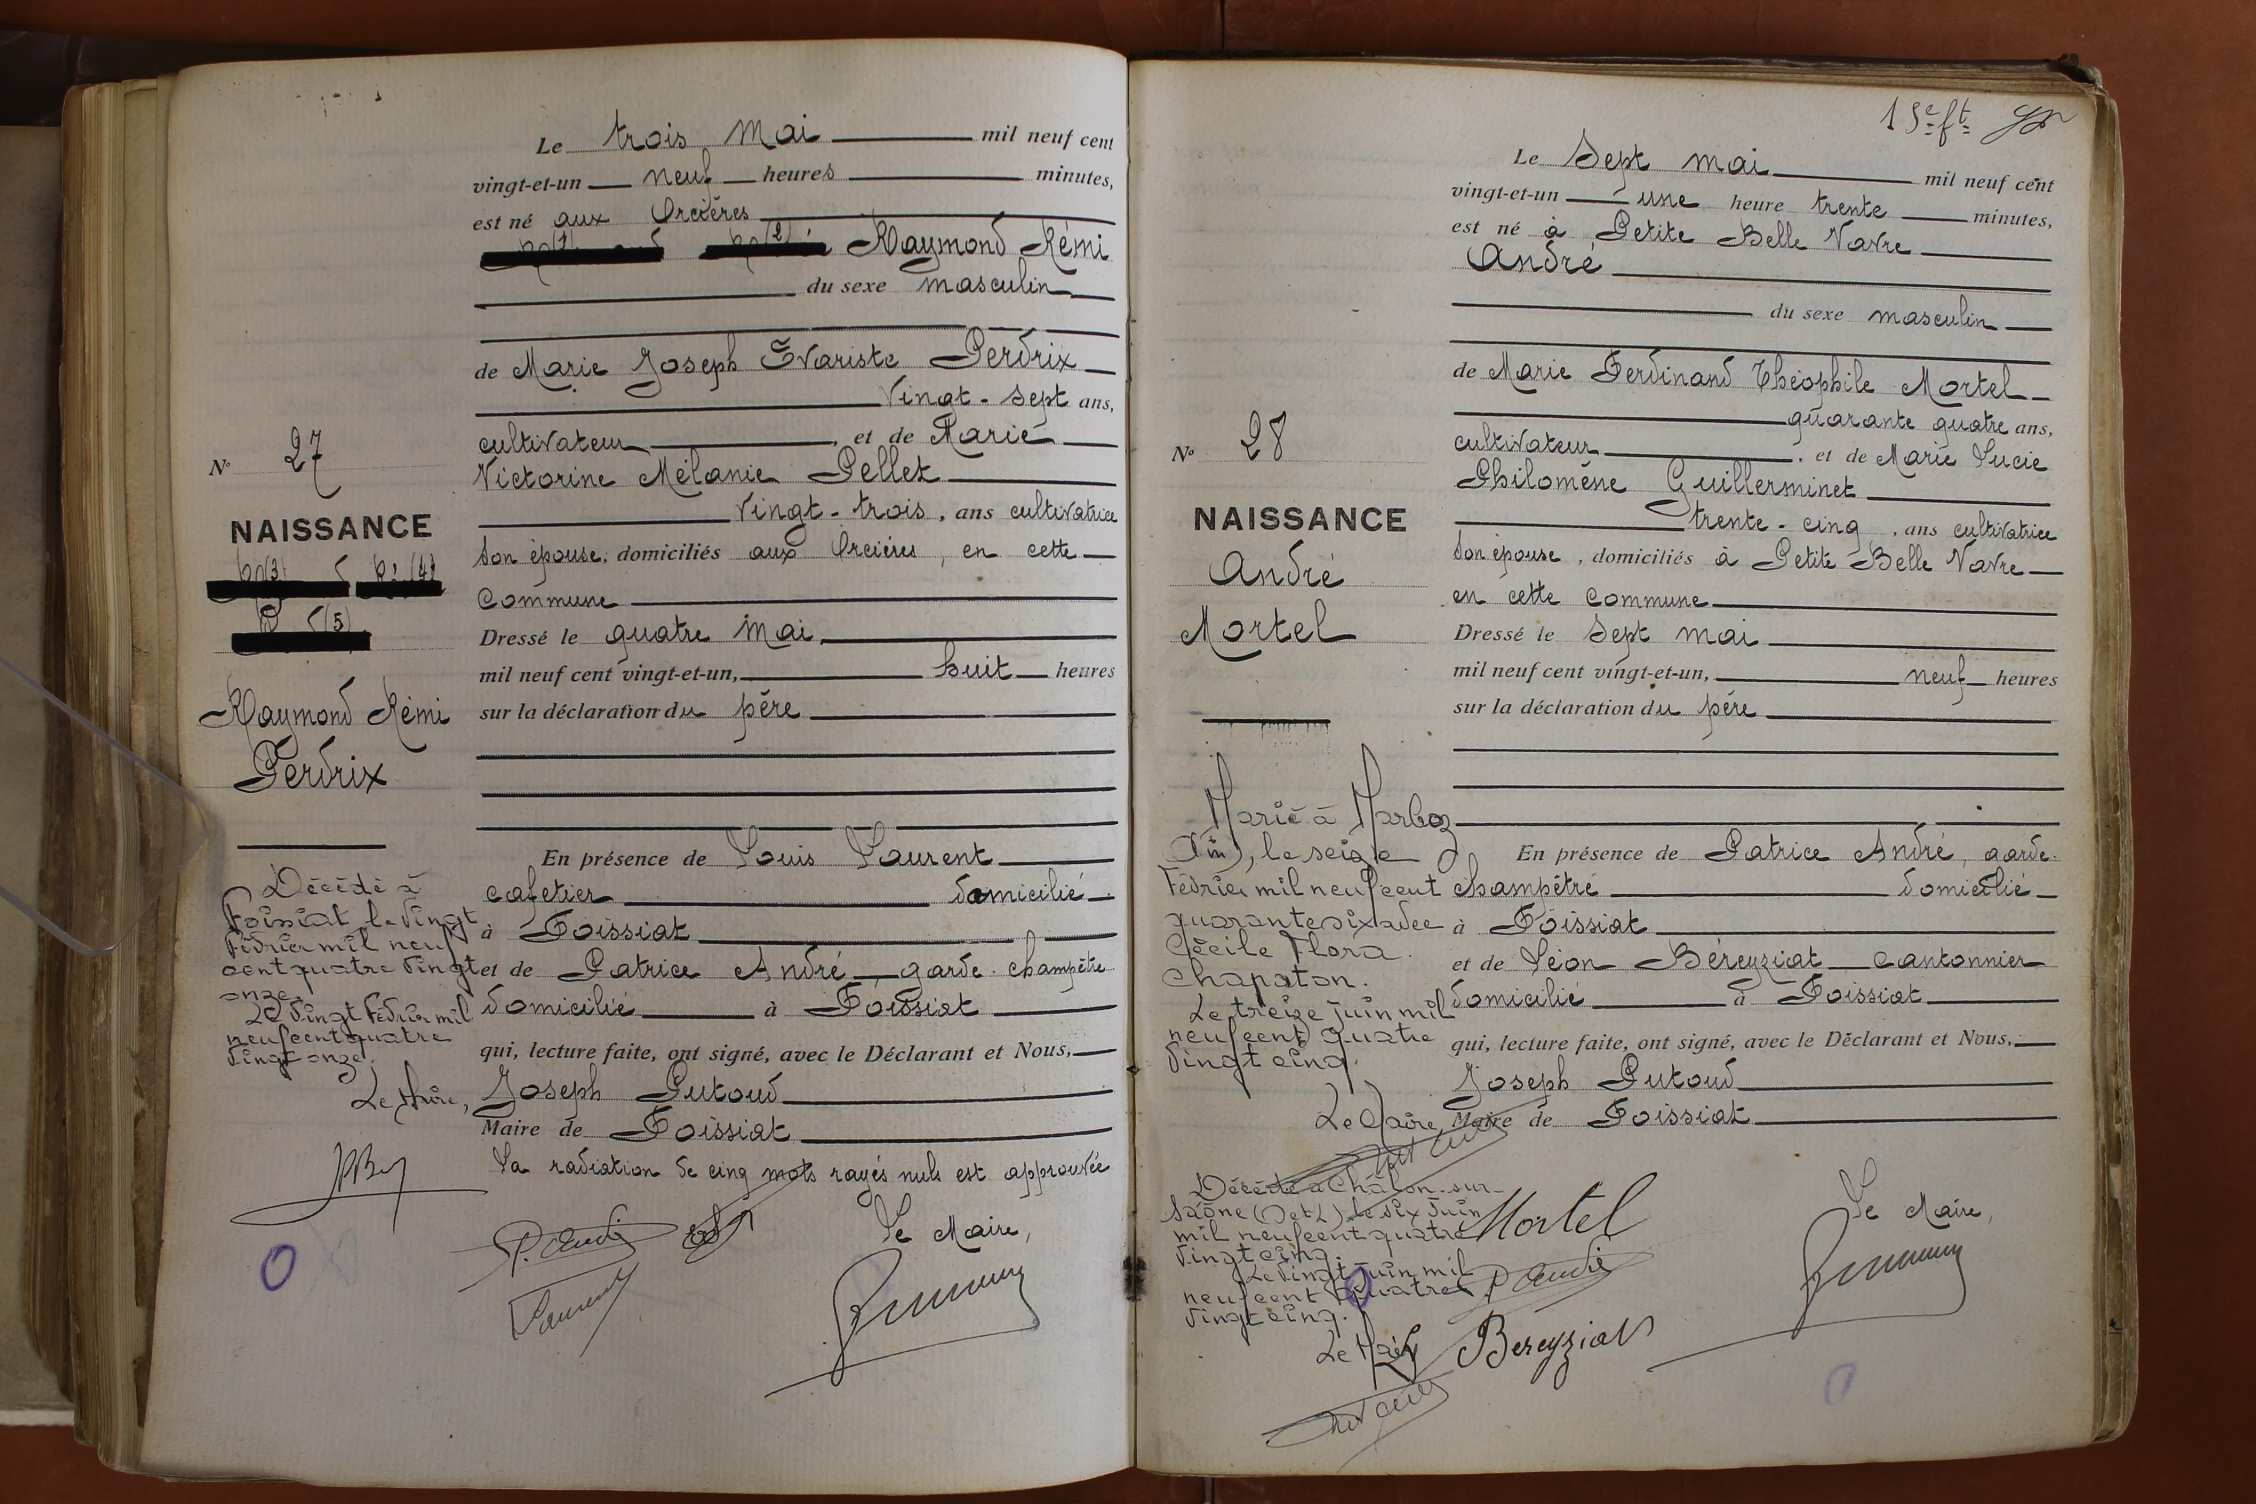 Le trois Mai mil neuf cent
vingt-et-un neuf heures minutes,
est né aux Orcières
(1) (2) Raymond Rémi
du sexe masculin
de Marie Joseph Evariste Perdrix
Vingt-sept ans,
cultivateur, et de Marie
Victorine Mélanie Pellet
Vingt-trois, ans cultivatrice
Son épouse, domiciliés aux Orcières, en cette
Commune
Dressé le quatre Mai
mil neuf cent vingt-et-un, huit heures
sur la déclaration du père
En présence de Louis Laurent
cafetier domicilié
à Foissiat
et de Patrice André garde-champêtre
domicilié à Foissiat
qui, lecture faite, ont signé, avec le Déclarant et Nous,
Joseph Putoud
Maire de Foissiat
La radiation de cinq mots rayés nuls est approuvée
Le Maire,
P. André
Laurent
N° 27
NAISSANCE
(3) (4)
(5)
Raymond Rémi
Perdrix
Décédé à
Foissiat le vingt
Février mil neuf
cent quatre vingt
onze.
Le vingt Février mil
neuf cent quatre
vingt onze.
Le Maire,
Le Sept mai mil neuf cent
vingt-et-un une heure trente minutes,
est né à Petite Belle Vavre
André
du sexe masculin
de Marie Ferdinand Théophile Mortel
quarante quatre ans,
cultivateur, et de Marie Lucie
Philomène Guillerminet
trente-cinq, ans cultivatrice
Son épouse, domiciliés à Petite Belle Vavre
en cette Commune
Dressé le Sept mai
mil neuf cent vingt-et-un, neuf heures
sur la déclaration du père
En présence de Patrice André, garde-
champêtre domicilié
à Foissiat
et de Léon Béreyziat cantonnier
domicilié à Foissiat
qui, lecture faite, ont signé, avec le Déclarant et Nous,
Joseph Putoud
Maire de Foissiat
Mortel
Le Maire,
P. André
Bereyziat
N° 28
NAISSANCE
André
Mortel
Marié à Marboz
(Ain), le seize
Février mil neuf cent
quarante six avec
Cécile Flora
Chapaton.
Le treize juin mil
neuf cent quatre
vingt cinq.
Le Maire
Décédé à Châlon-sur-
Saône (S et L) le six Juin
mil neuf cent quatre
vingt cinq.
Le vingt juin mil
neuf cent quatre
vingt cinq.
Le Maire